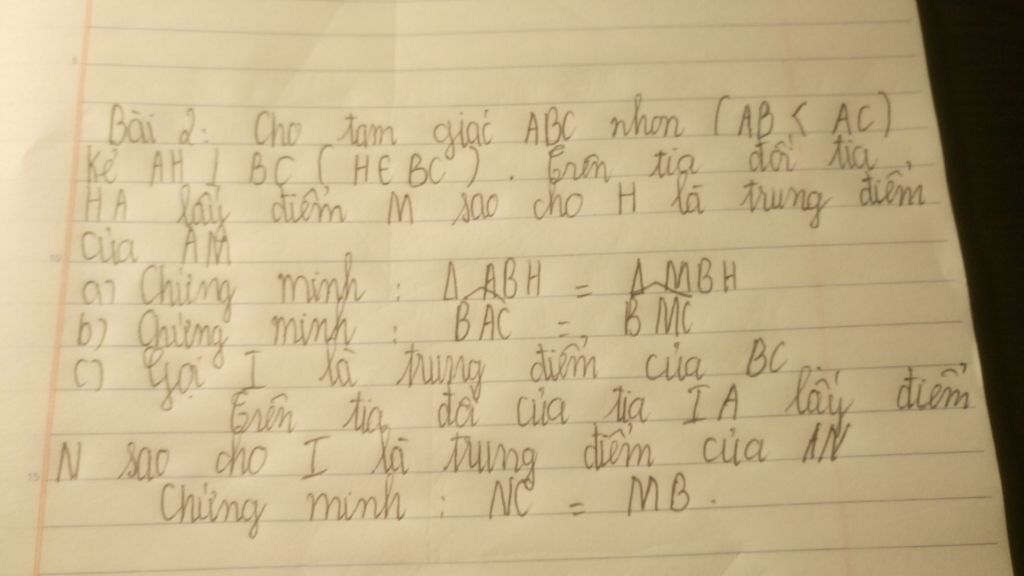 Bài 2: Cho tam giác ABC nhọn (AB < AC)
Kẻ AH ⊥ BC (H ∈ BC). Trên tia đối tia
HA lấy điểm M sao cho H là trung điểm
của AM
a) Chứng minh : Δ ABH = Δ MBH
b) Chứng minh : \widehat{BAC} = \widehat{BMC}
c) Gọi I là trung điểm của BC
Trên tia đối của tia IA lấy điểm
N sao cho I là trung điểm của AN
Chứng minh : NC = MB.